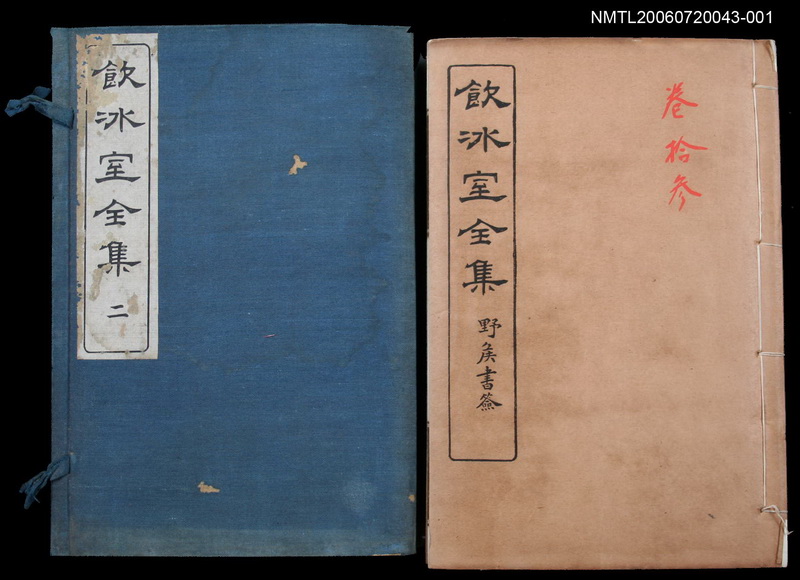 NMTL20060720043-001
飲冰室全集
二
飲冰室全集
野矦書簽
卷拾參